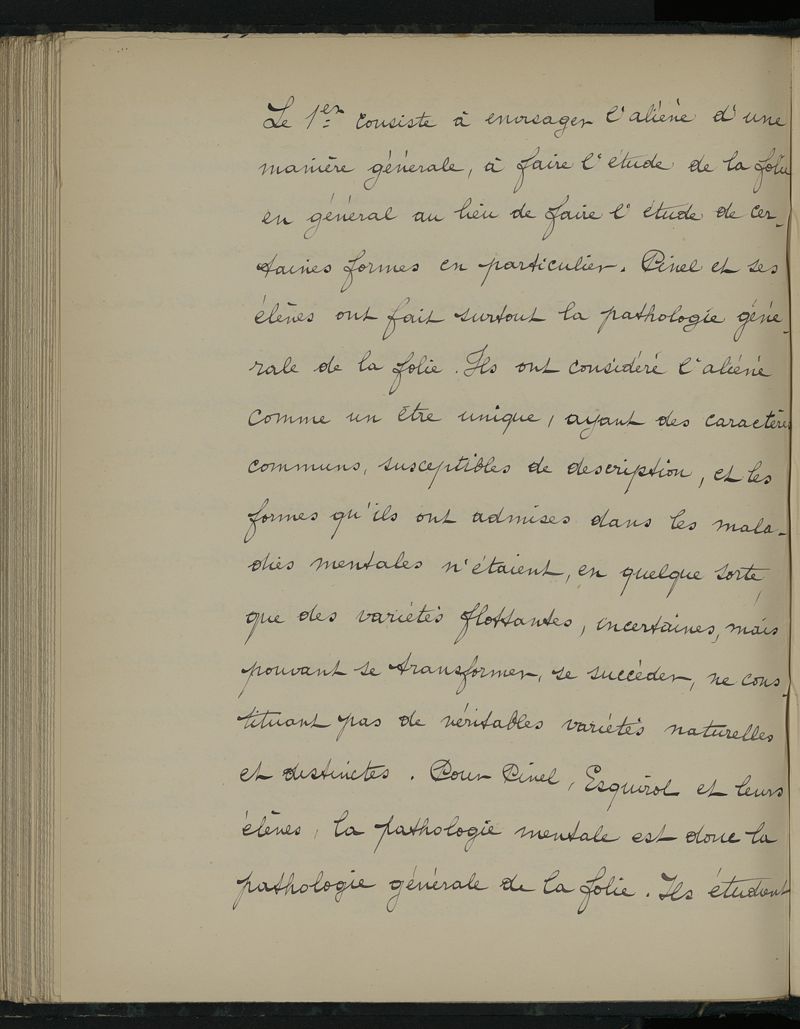 Le 1er consiste à envisager l'aliéné d'une
manière générale, à faire l'étude de la folie
en général au lieu de faire l'étude de cer-
taines formes en particulier. Pinel et ses
élèves ont fait surtout la pathologie géné-
rale de la folie. Ils ont considéré l'aliéné
comme un être unique, ayant des caractères
communs, susceptibles de description, et les
formes qu'ils ont admises dans les mala-
dies mentales n'étaient, en quelque sorte,
que des variétés flottantes, incertaines, mais
pouvant se transformer, se succéder, ne cons-
tituant pas de véritables variétés naturelles
et distinctes. Pour Pinel, Esquirol et leurs
élèves, la pathologie mentale est donc la
pathologie générale de la folie. Ils étudient